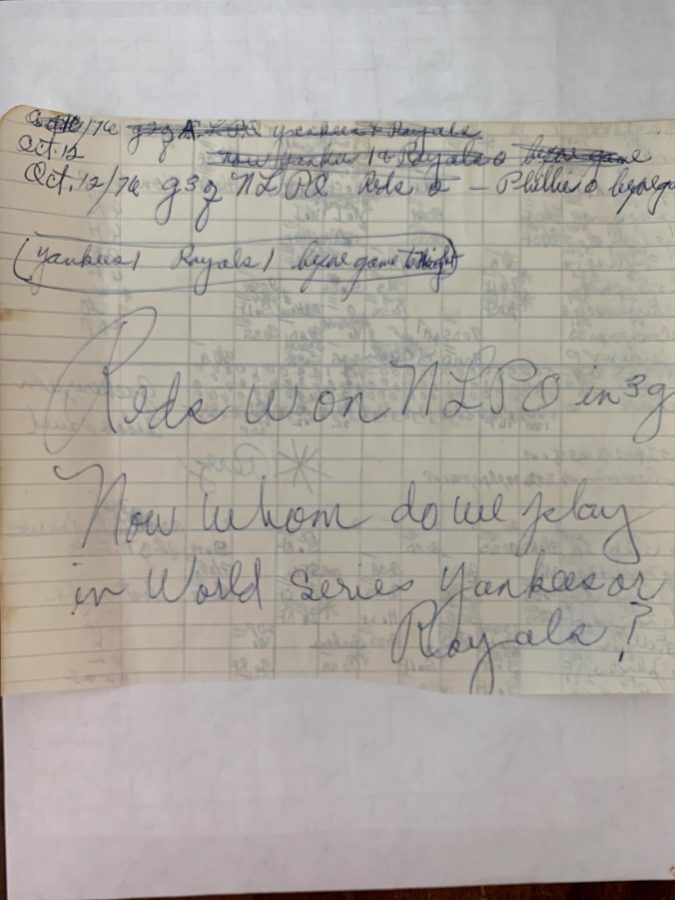 /76 g2g A.L.P.O Yankees 1 Royals
Oct. 12 now Yankees 1 & Royals 0 before game
Oct. 12/76 g3g NLPO Reds 2 - Phillies 0 before ga
(Yankees 1 Royals 1 before game tonight)
Reds won NLPO in 3 g
Now whom do we play
in World Series Yankees or
Royals?